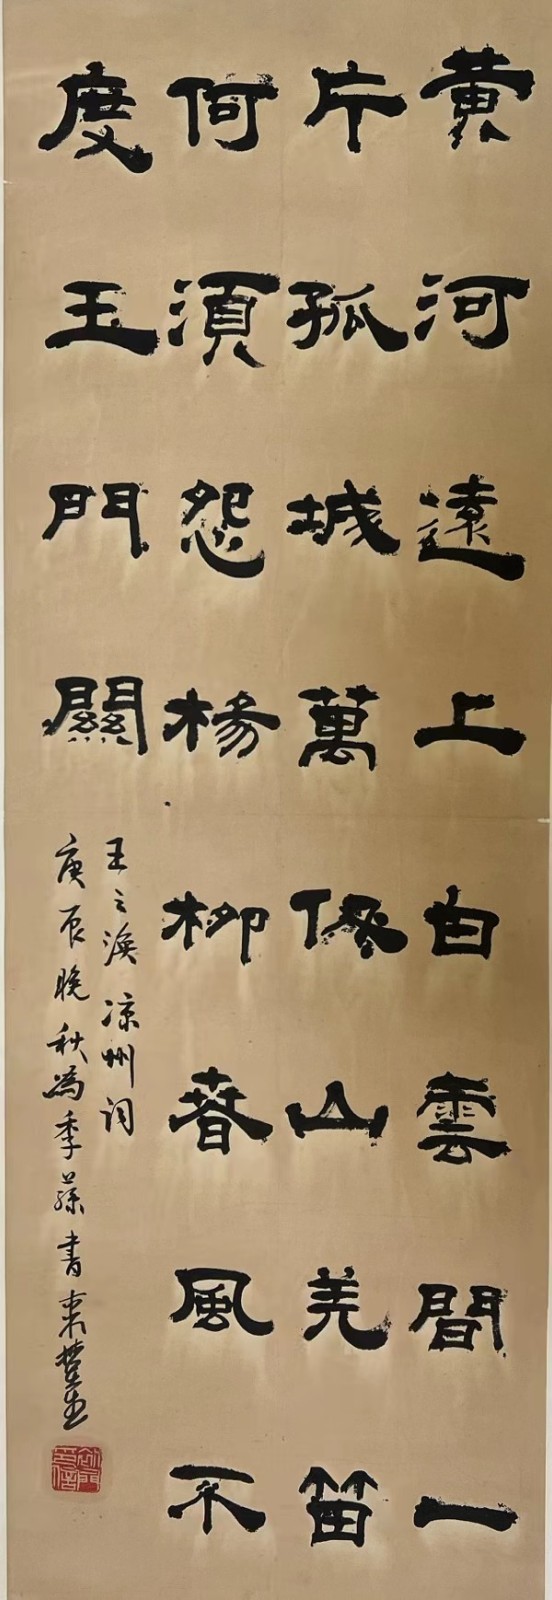 黄河遠上白雲間一
片孤城萬仞山羌笛
何須怨楊柳春風不
度玉門關
王之渙凉州詞
庚辰晚秋為季蓀書